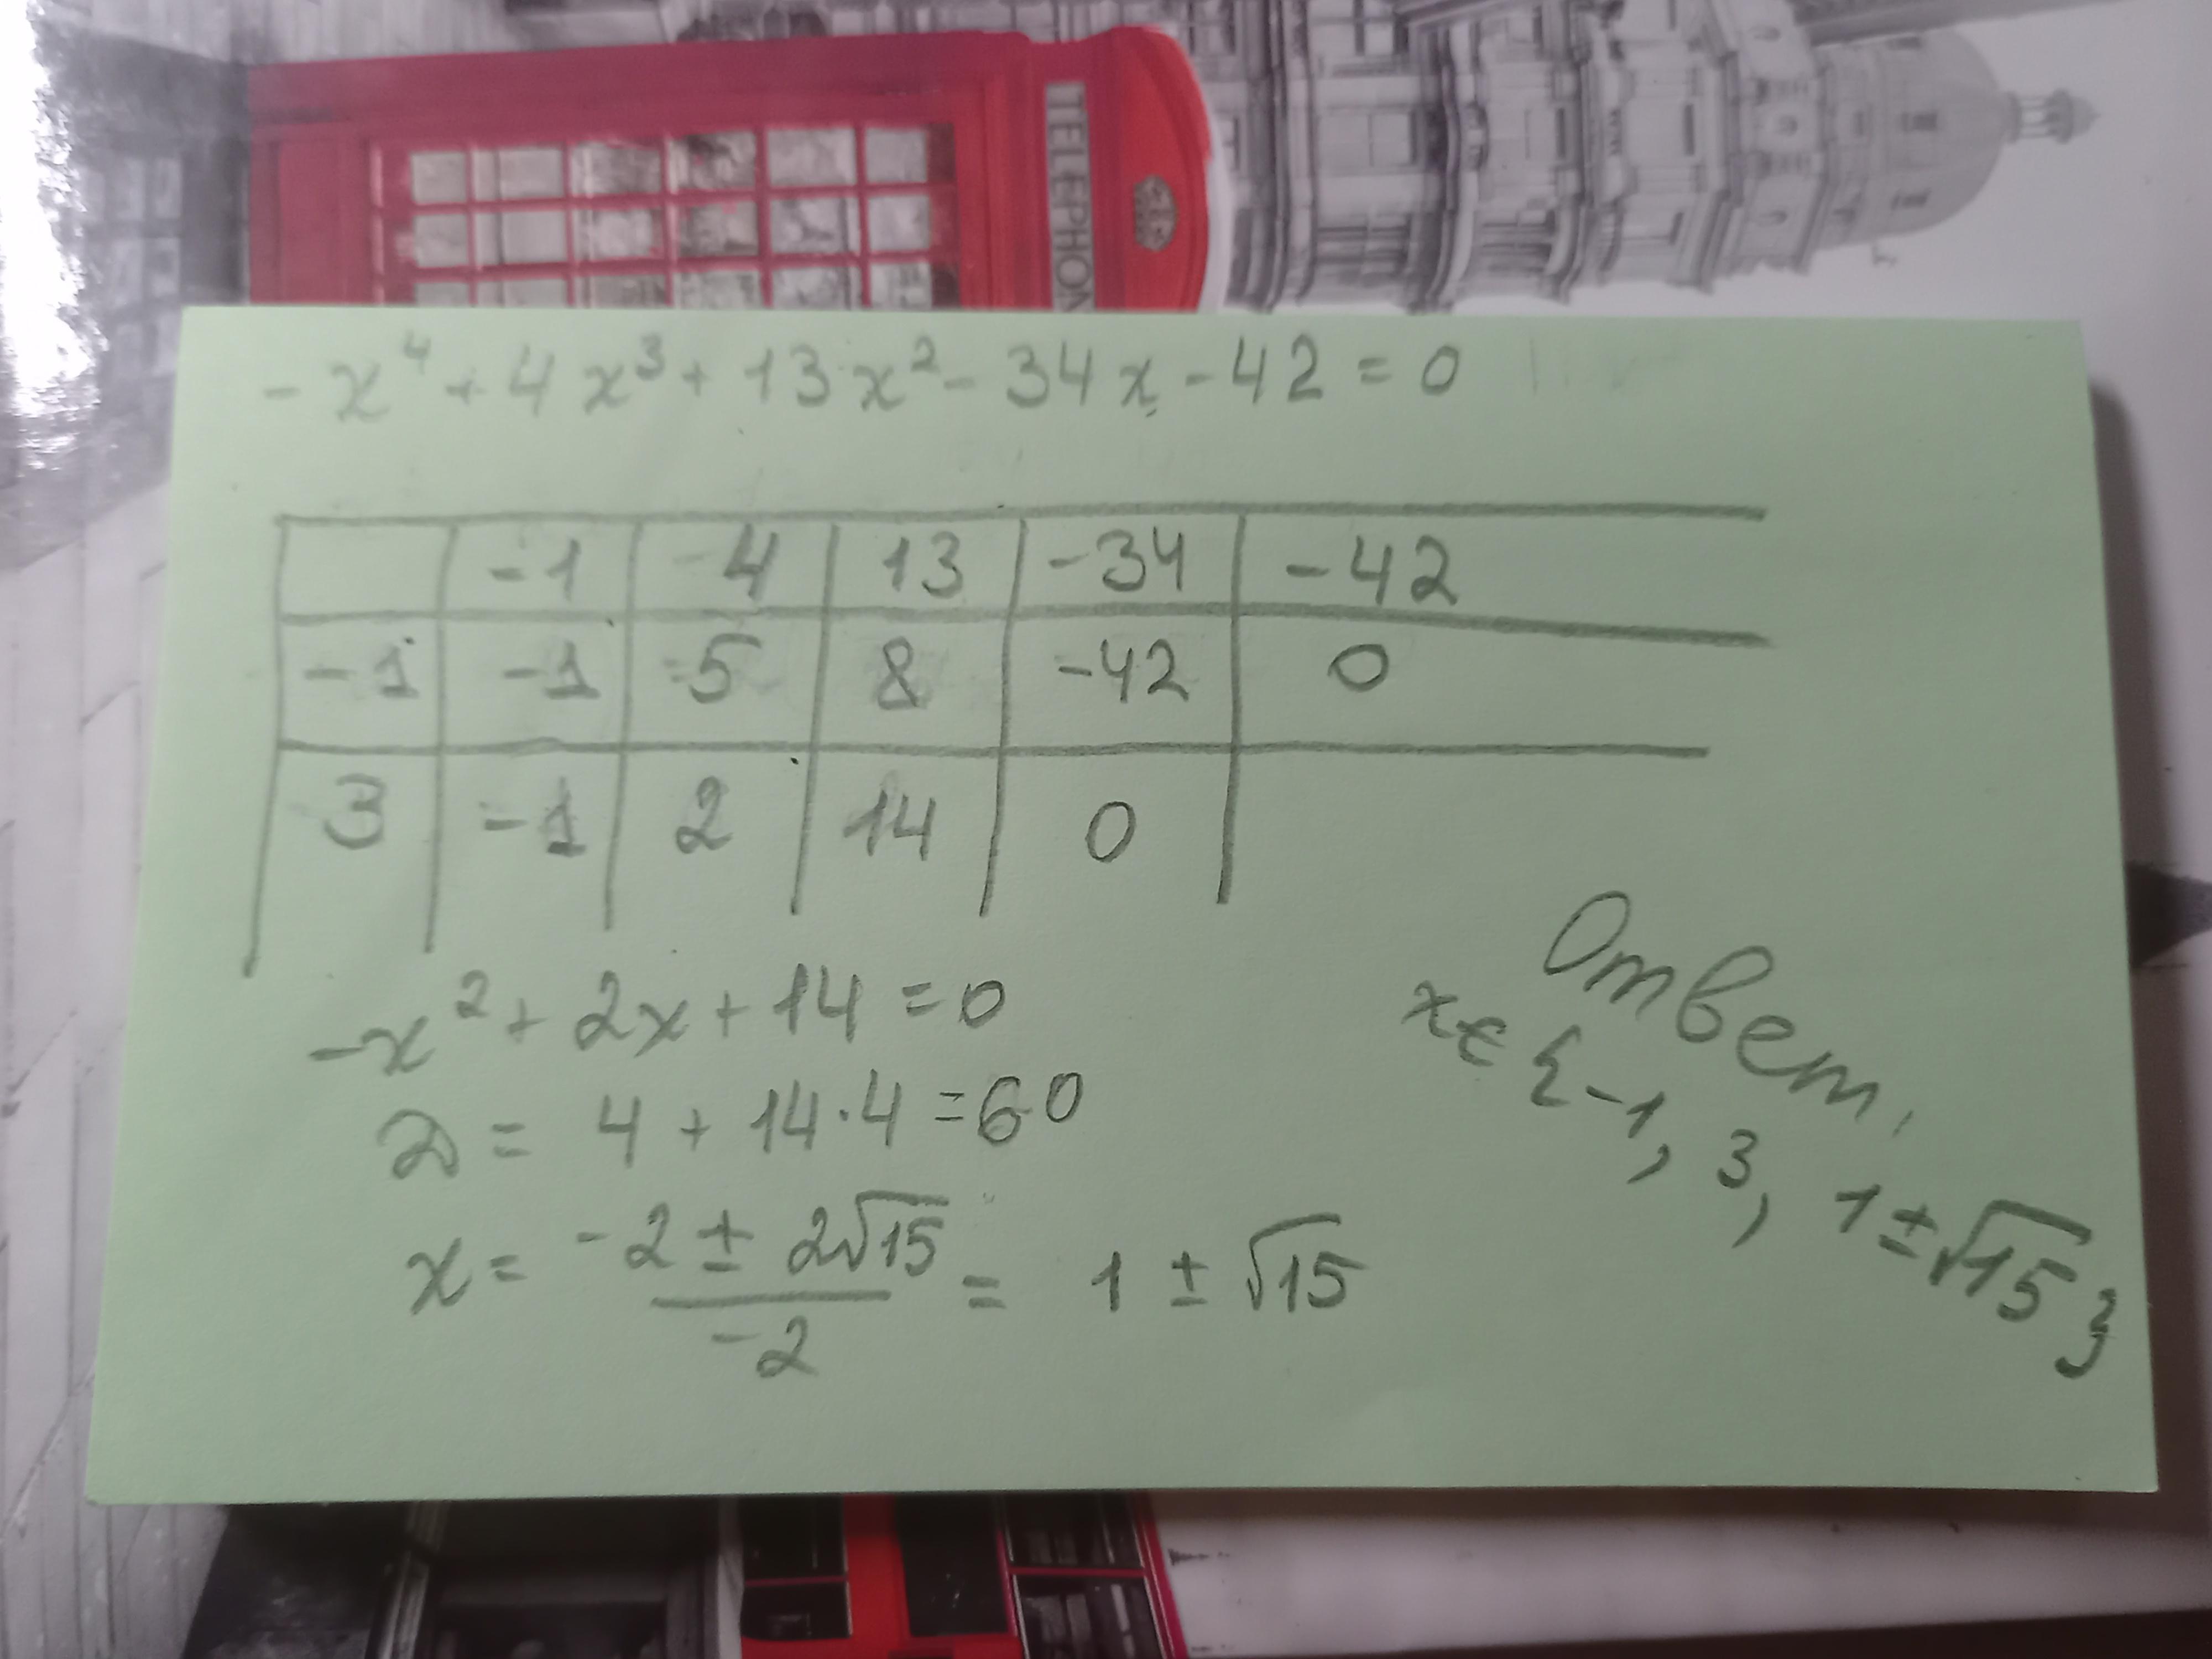 TELEPHON
-x⁴ + 4x³ + 13x² - 34x - 42 = 0
-1 4 13 -34 -42
-1 -1 5 8 -42 0
3 -1 2 14 0
-x² + 2x + 14 = 0
D = 4 + 14·4 = 60
x = (-2 ± 2√15)/-2 = 1 ± √15
Ответ,
x ∈ {-1, 3, 1 ± √15}